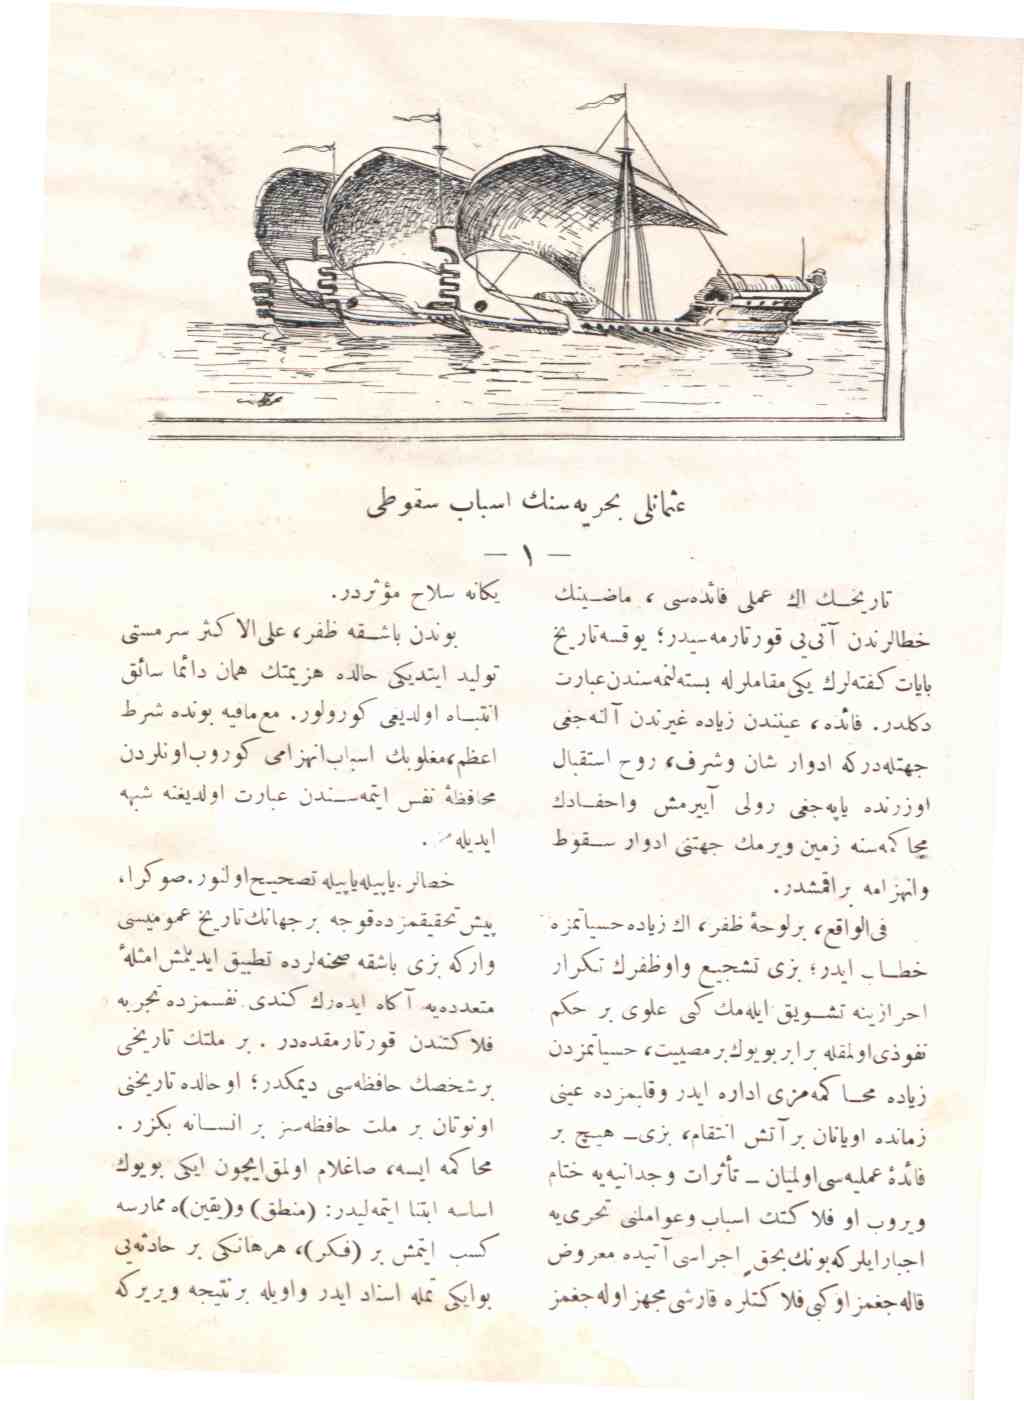 عثمانلی بحریه‌سنك اسباب سقوطی
— ۱ —
تاریخـــك اڭ عملی فائده‌سی ، ماضــینك
خطالرندن آتی‌یی قورتارمه‌سیدر؛ یوقسه تاریخ
بایات كفته‌لرك یكی مقاملرله بسته‌لنمه‌سندن عبارت
دكلدر. فائده ، عیندن زیاده غیرندن آلنه‌جغی
جهتله‌دركه ادوار شان وشرف، روح استقبال
اوزرنده یاپه‌جغی رولی آییرمش واحفــادك
محاكمه‌سنه زمین ویرمك جهتنی ادوار ســقوط
وانهزامه براقمشدر.
فی‌الواقع، برلوحهٔ ظفر، اڭ زیاده حسیاتمزه
خطــاب ایدر؛ بزی تشجیع واوظفرك تكرار
احرازینه تشــویق ایله‌مك كبی علوی بر حكم
نفوذی اولمقله برابر بویوك برمصیبت، حسیاتمزدن
زیاده محــاكمه‌مزی اداره ایدر وقلبمزده عینی
زمانده اویانان بر آتش انتقام، بزی ــ هیچ بر
فائدهٔ عملیه‌سی اولمیان ــ تأثرات وجدانیه‌یه ختام
ویروب او فلاكتك اسباب وعواملنی تحری‌یه
اجبار ایلركه بونك بحق اجراسی آتیده معروض
قاله‌جغمز اوكبی فلاكتلره قارشی مجهز اوله‌جغمز
یكانه سلاح مؤثردر.
بوندن باشــقه ظفر، علی‌الاكثر سرمستی
تولید ایتدیكی حالده هزیمتك همان دائما سائق
انتبــاه اولدیغی كورولور. مع‌مافیه بونده شرط
اعظم، مغلوبك اسباب انهزامی كوروب اونلردن
محافظهٔ نفس ایتمه‌ســندن عبارت اولدیغنه شبهه
ایدیله‌مز .
خطالر. یاپیله یاپیله تصحیح اولنور. صوكرا،
پیش تحقیقمزده قوجه برجهانك تاریخ عمومیسی
واركه بزی باشقه صحنه‌لرده تطبیق ایدیلمش امثلهٔ
متعدده‌یه آگاه ایده‌رك كندی نفسمزده تجربه
فلاكتندن قورتارمقده‌در . بر ملتك تاریخی
برشخصك حافظه‌سی دیمكدر؛ اوحالده تاریخنی
اونوتان بر ملت حافظه‌سز بر انســانه بكزر .
محاكمه ایسه، صاغلام اولمق ایچون ایكی بویوك
اساسه ابتنا ایتمه‌لیدر: (منطق) و(یقین)ه ممارسه
كسب ایتمش بر (فـكر)، هرهانكی بر حادثه‌یی
بوایكی تمله اسناد ایدر واویله برنتیجه ویریركه